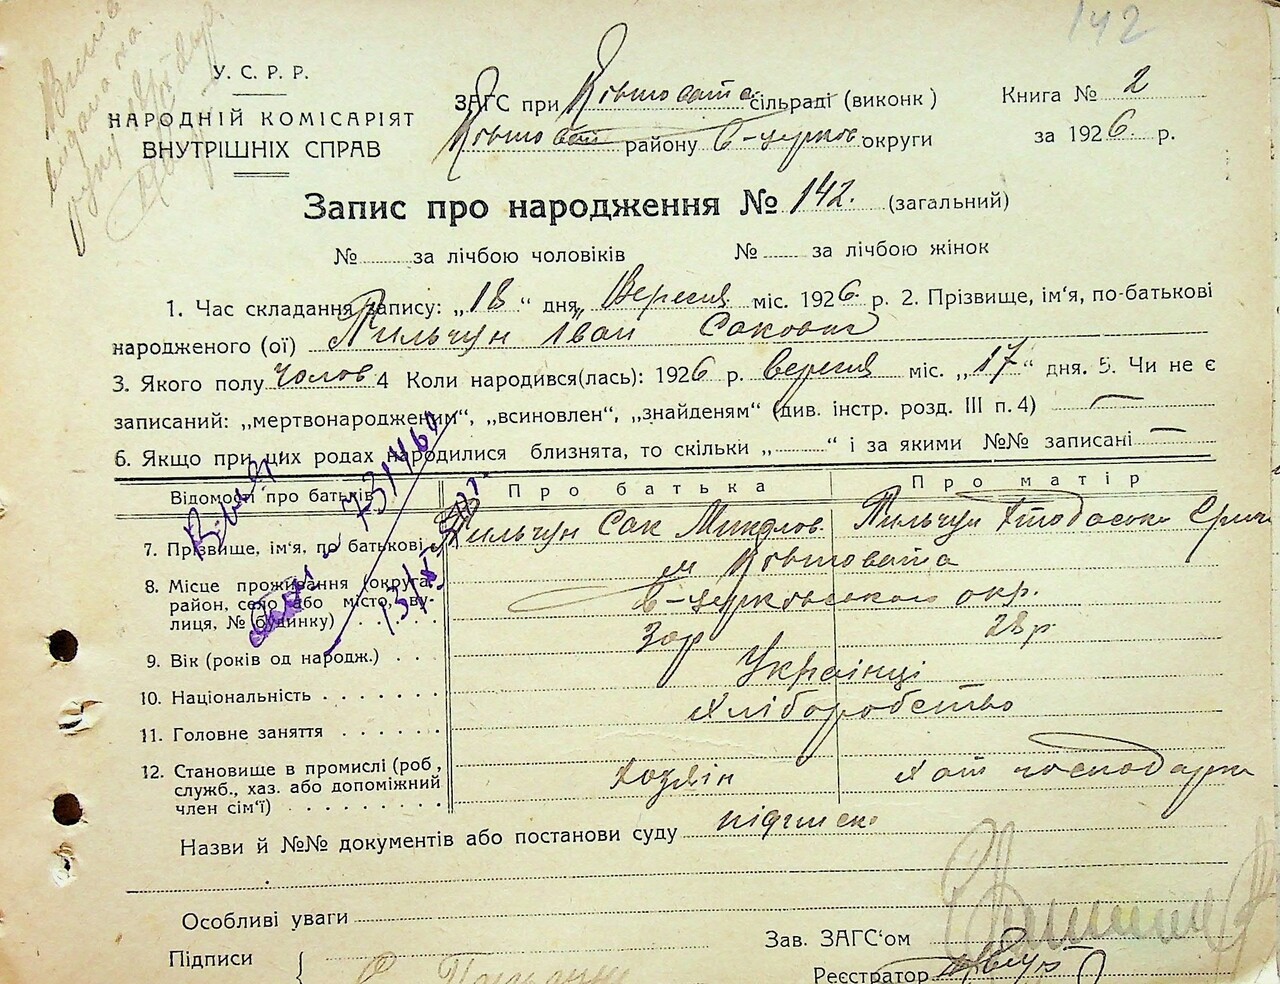 142
У.С.Р.Р.
НАРОДНІЙ КОМІСАРІЯТ
ВНУТРІШНІХ СПРАВ
ЗАГС при Ковшовата сільраді (виконк)
Ковшоват району Б-церков. округи
Книга № 2
за 1926 р.
Запис про народження № 142. (загальний)
№ за лічбою чоловіків № за лічбою жінок
1. Час складання запису: „18“ дня „Вересня міс. 1926 р. 2. Прізвище, ім'я, по-батькові
народженого (ої) Пильчун Іван Сакович
3. Якого полу чолов 4 Коли народився(лась): 1926 р. вересня міс. „17“ дня. 5. Чи не є
записаний: „мертвонародженим“, „всиновлен“, „знайденям“ (див. інстр. розд. III п. 4) —
6. Якщо при цих родах народилися близнята, то скільки „ “ і за якими №№ записані —
Відомості про батьків Про батька Про матір
7. Прізвище, ім'я, по батькові Пильчун Сак Миколов. Пильчун
8. Місце проживання (округа, район, село або місто, вулиця, № будинку) м Ковшовата
Б-церковського окр.
9. Вік (років од народж.) 28 р.
10. Національність Українці
11. Головне заняття Хліборобство
12. Становище в промислі (роб., служб., хаз. або допоміжний член сім'ї) Хозяін Хат господарка
Назви й №№ документів або постанови суду
Особливі уваги
Зав. ЗАГС'ом
Підписи
Реєстратор